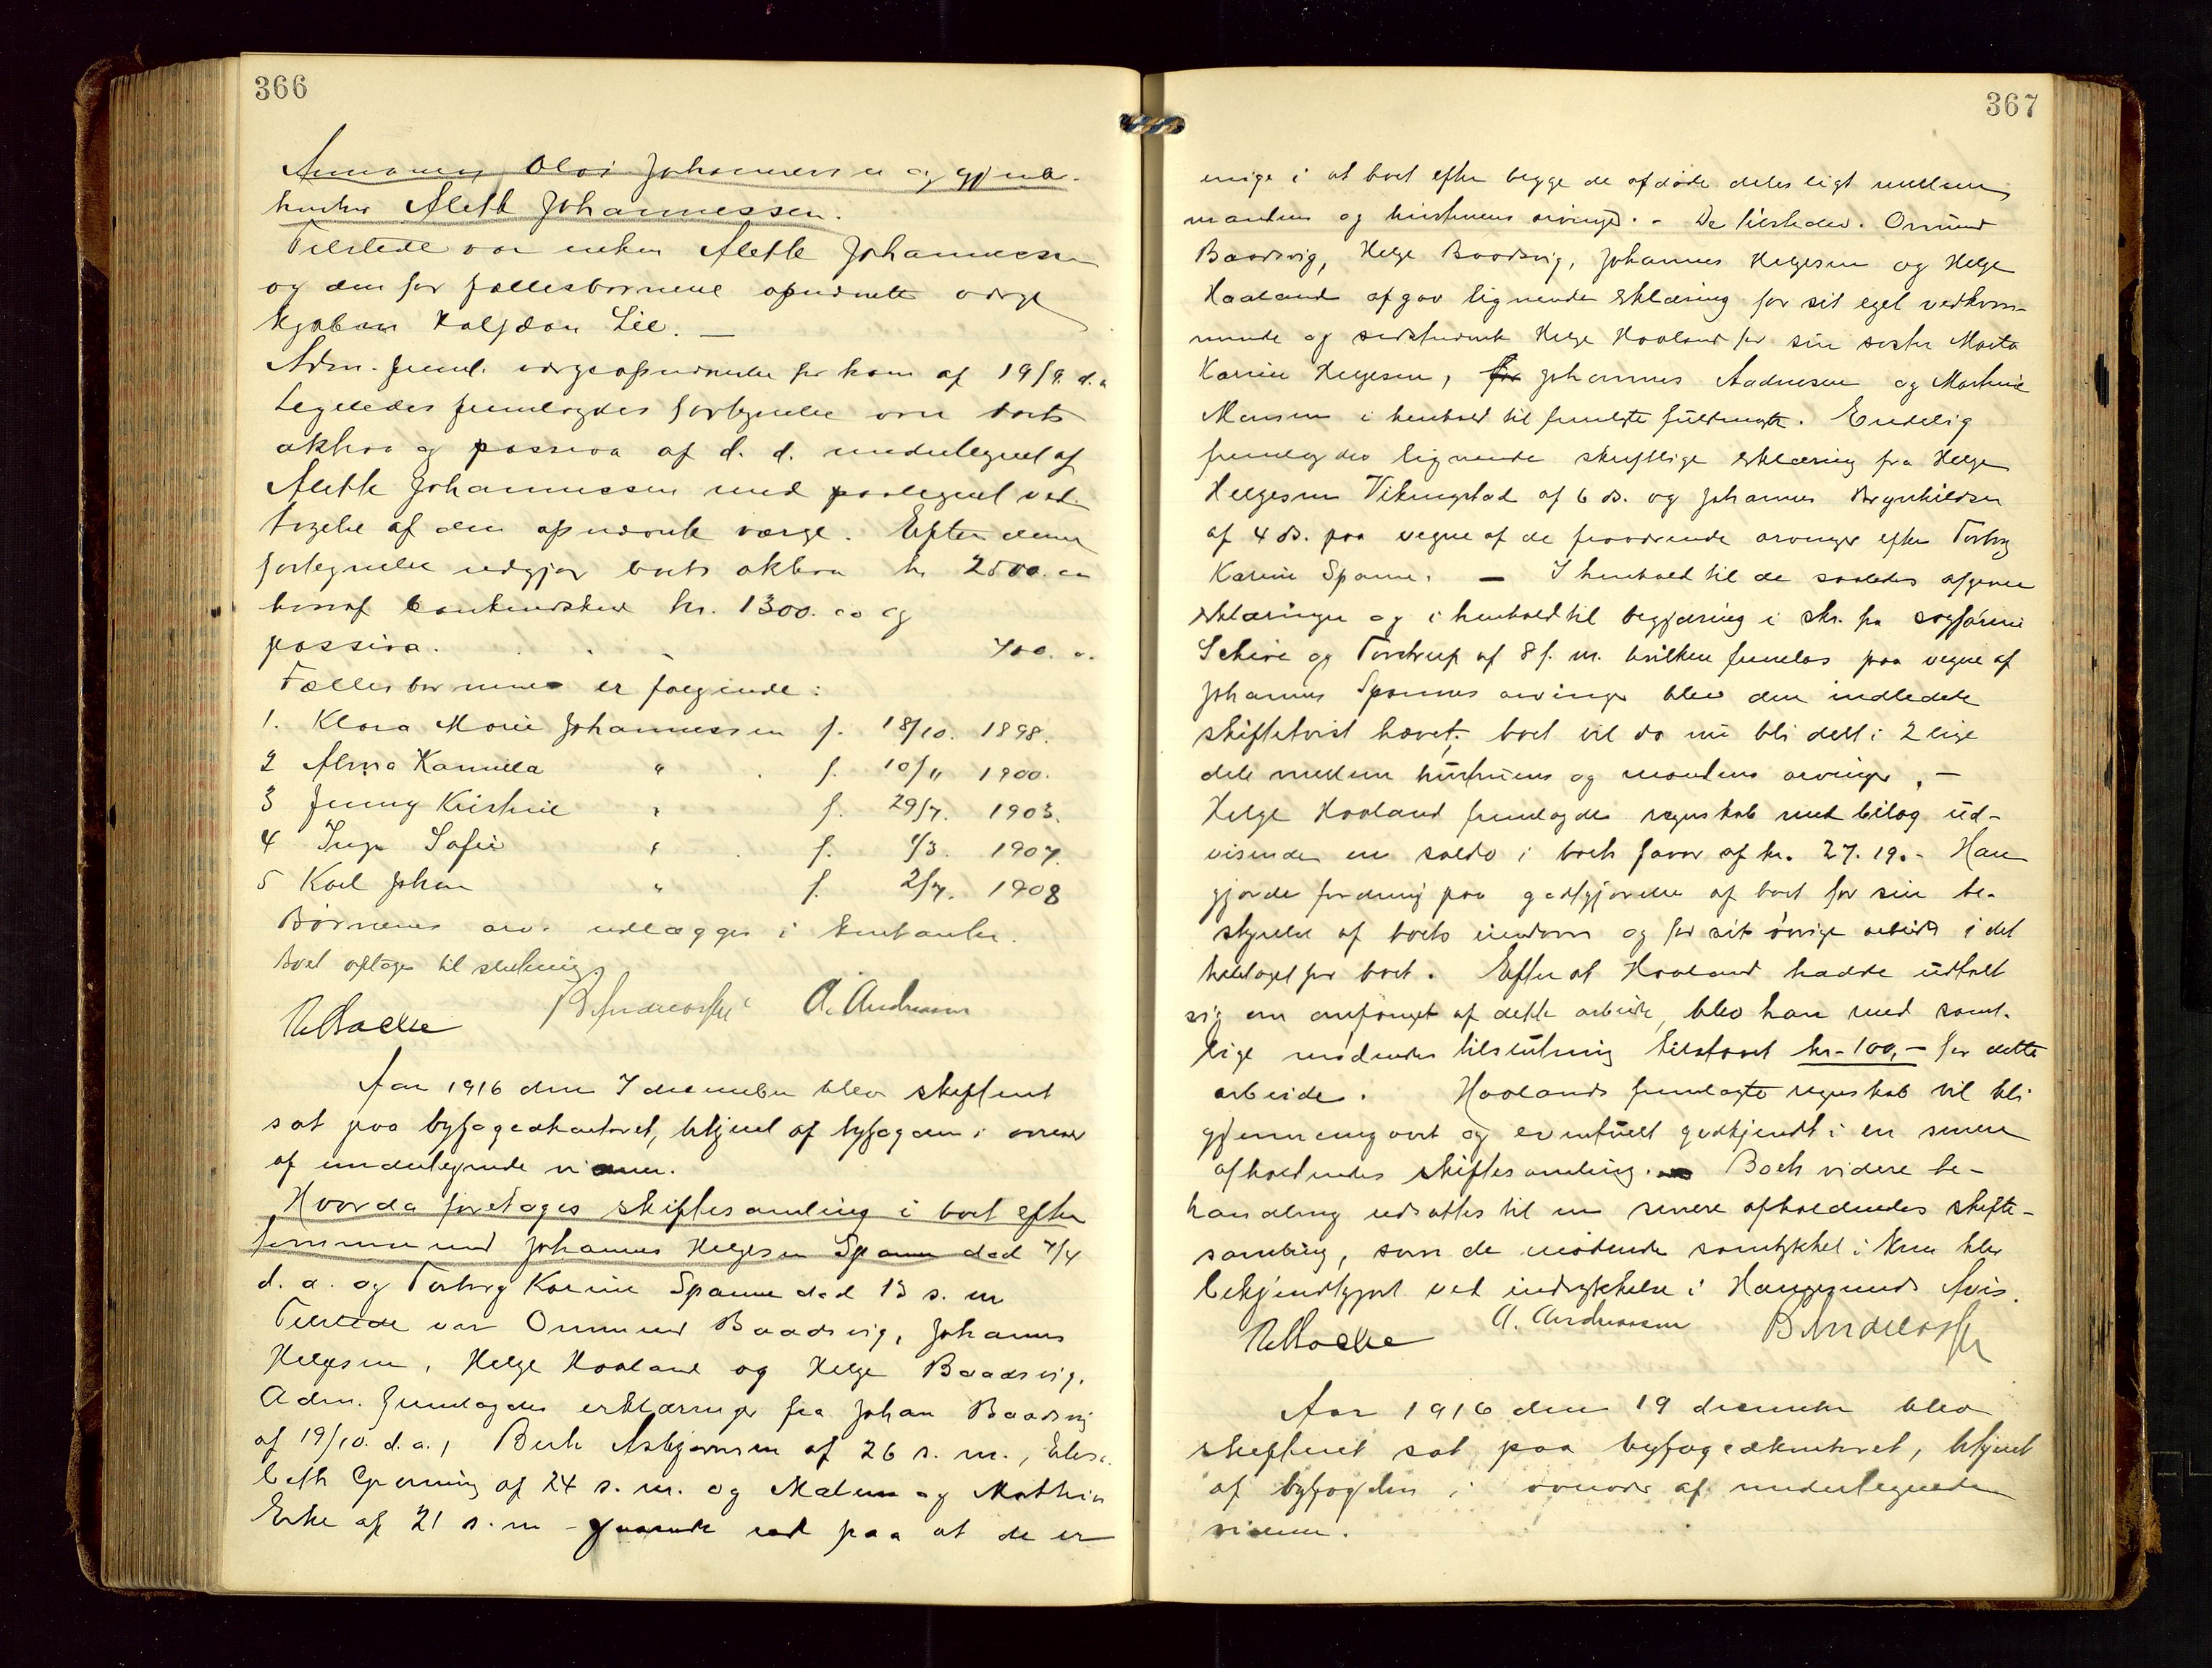 366
Olai Johannessen og gjenl.
hustru Alette Johannessen.
Tilstede var enken Alette Johannessen
og den for fællesbørnene opnævnte værge
Halfdan Lie. —
Adm. freml. værgeopnævnelse for ham af 19/9. d.a
Ligeledes fremlagdes fortegnelse over boets
aktiva og passiva af d. d. undertegnet af
Alette Johannessen med paategnet ved-
tagelse af den opnævnte værge. Efter denne
fortegnelse udgjør boets aktiva kr. 2500.00
hvoraf kr. 1300.00 og
passiva. . . . 700.00
Fællesbørnene er følgende:
1. Klara Marie Johannessen f. 18/10. 1898.
2 Alma Kamilla " f. 10/11 1900.
3 Jenny Kristine " f. 29/7. 1903.
4 Inga Sofie " f. 1/3. 1907.
5 Karl Johan " f. 2/7. 1908
Børnenes arv udlægges i kontanter.
Boet optages til slutning.
A. Andreassen
Aar 1916 den 7 december blev skifteret
sat paa byfogedkontoret, betjent af byfogden i overvær
af undertegnede vidner.
Hvorda foretoges skiftesamling i boet efter
Johannes Helgesen Spanne død 7/4
d. a. og Torborg Karine Spanne død 13 s. m
Tilstede var Ommund Baadsvig, Johannes
Helgesen, Helge Haaland og Helge Baadsvig.
Adm. fremlagdes erklæringer fra Johan Baadsvig
af 19/10. d.a., Berte Asbjørnsen af 26 s. m., Elisa-
beth af 24 s. m. og og Mathias
Erke af 21 s. m gaaende ud paa at de er
367
enige i at boet efter begge de afdøde deles ligt mellem
mandens og hustruens arvinger. - De tilstedev. Ommund
Baadsvig, Helge Baadsvig, Johannes Helgesen og Helge
Haaland afgav lignende erklæring for sit eget vedkom-
mende og sidstnævnte Helge Haaland for sin søster Marta
Karine Helgesen, for Johannes Aadnesen og Martine
Monsen i henhold til fremlgte fuldmagter. Endelig
fremlagdes lignende skriftlige erklæring fra Helge
Helgesen Vikingstad af 6 ds. og Johannes Brynhildsen
af 4 ds. paa vegne af de fraværende arvinger efter Torborg
Karine Spanne. — I henhold til de saaledes afgivne
erklæringer og i henhold til begjæring i skr. fra sagførerne
Schive og Torstrup af 8 f. m. hvilken fremlas paa vegne af
Johannes Spannes arvinger blev den indledede
skiftetvist hævet; boet vil da nu bli delt i 2 lige
dele mellem hustruens og mandens arvinger. —
Helge Haaland fremlagde regnskab med bilag ud-
visende en saldo i boets favør af kr. 27.19. - Han
gjorde fordring paa godtgjørelse af boet for sin be-
styrelse af boets eiendom og for sit øvrige arbeide i det
heletaget for boet. Efterat Haaland hadde udtalt
sig om omfanget af dette arbeide, blev han med samt-
lige mødendes tilslutning tilstaaet kr. 100,- for dette
arbeide. Haalands fremlagte regnskab vil bli
gjennemgaaet og eventuelt godkjendt i en senere
afholdendes skiftesamling. Boets videre be-
handling udsattes til en senere afholdendes skifte-
samling, som de mødende samtykket i kun blev
bekjendtgjort ved indrykkelse i Haugesunds Avis.
A. Andreassen
Aar 1916 den 19 december blev
skifteret sat paa byfogedkontoret, betjent
af byfogden i overvær af undertegnede
vidner.